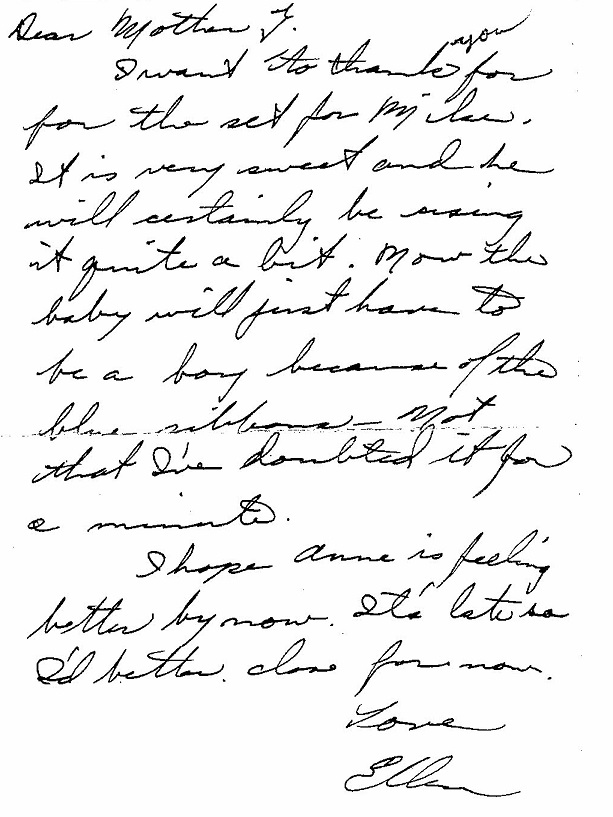 Dear Mother F.
I want to thank you for
for the set for Mike.
It is very sweet and he
will certainly be using
it quite a bit. Now the
baby will just have to
be a boy because of the
blue ribbons - Not
that I've doubted it for
a minute.
I hope Anne is feeling
better by now. It's late so
I'd better close for now.
Love
Ellen